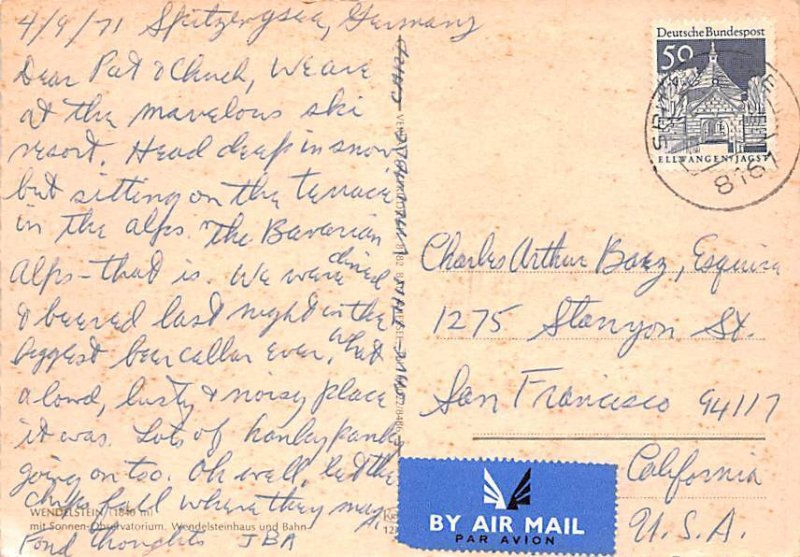 4/9/71 Spitzingsee, Germany
Dear Pat & Chuck, We are
at the marvelous ski
resort. Head deep in snow
but sitting on the terrace
in the alps. The Bavarian
alps - that is. We were dined
& beered last night in the
biggest beer cellar ever. What
a loud, lusty & noisy place
it was. Lots of hanky panky
going on too. Oh well, let the
chips fall where they may
Fond thoughts JBA
WENDELSTEIN (1840 m)
mit Sonnen-Observatorium. Wendelsteinhaus und Bahn
Deutsche Bundespost
50
ELLWANGEN/JAGST
8161
Charles Arthur Baez, Esquire
1275 Stanyon St.
San Francisco 94117
California
U.S.A.
BY AIR MAIL
PAR AVION